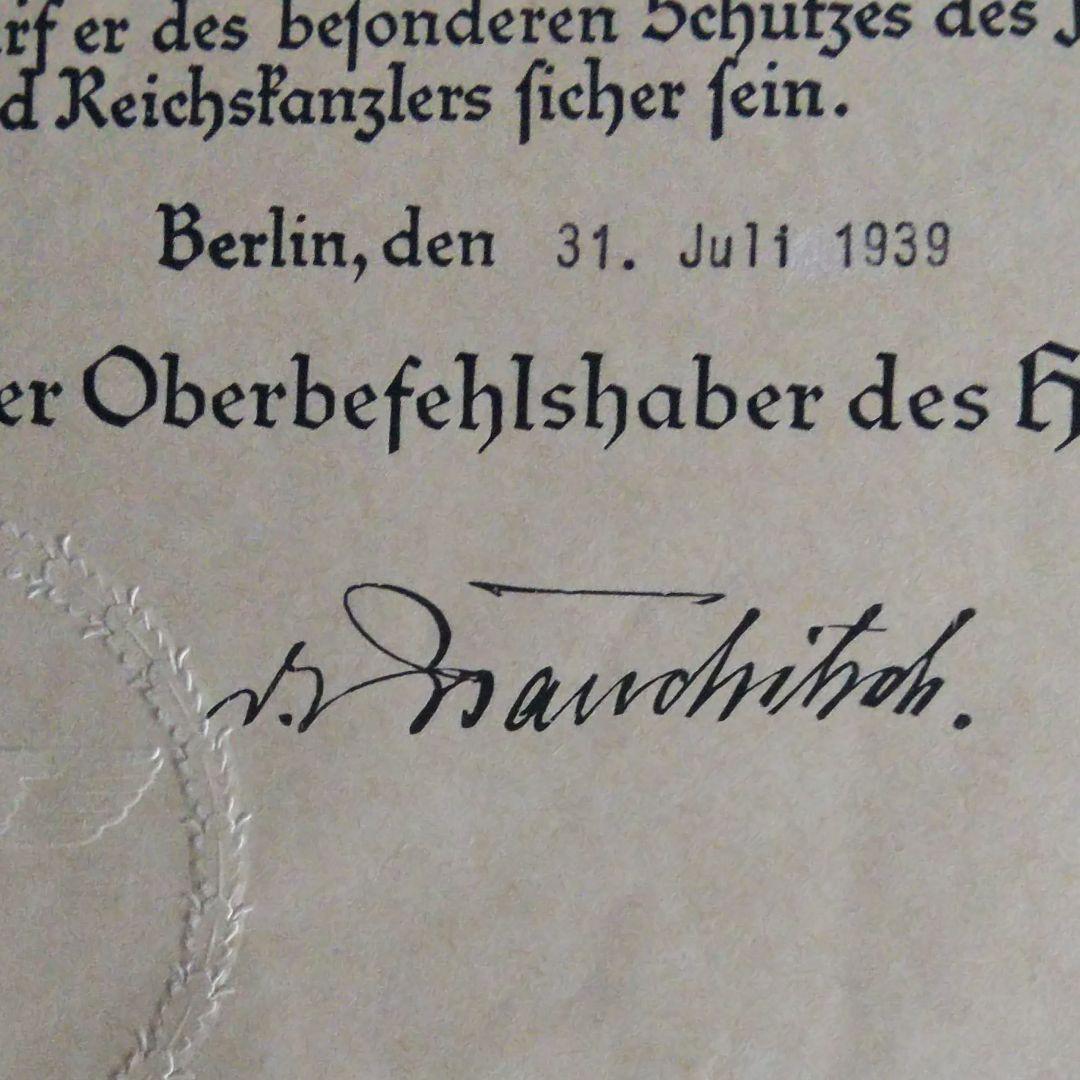 rf er des beſonderen Schutzes des
d Reichskanzlers ſicher ſein.
Berlin, den 31. Juli 1939
er Oberbefehlshaber des H
v. Brauchitsch.